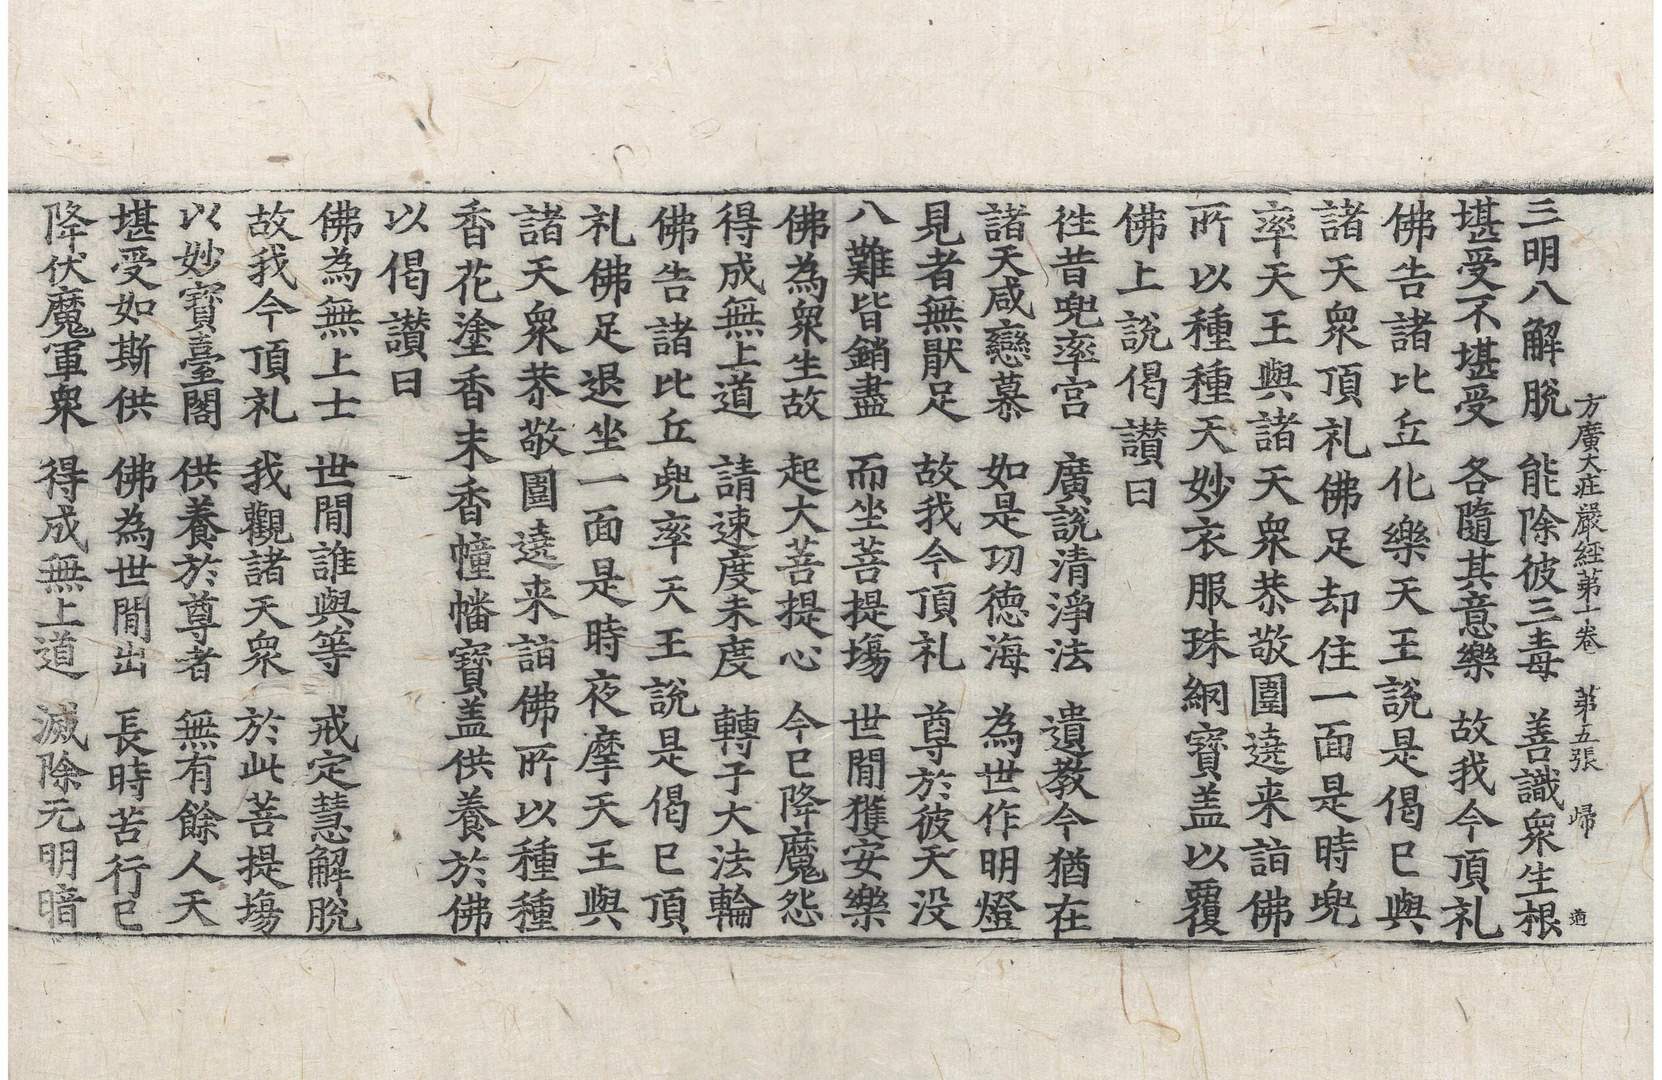 方廣大莊嚴經第十卷　第五張　歸　道
三明八解脫　能除彼三毒　善識衆生根
堪受不堪受　各隨其意樂　故我今頂礼
佛告諸比丘化樂天王說是偈巳與
諸天衆頂礼佛足却住一面是時兜
率天王與諸天衆恭敬圍遶来詣佛
所以種種天妙衣服珠網寶盖以覆
佛上說偈讃曰
徃昔兜率宮　廣說清淨法　遺教今猶在
諸天咸戀慕　如是功德海　為世作明燈
見者無猒足　故我今頂礼　尊於彼天没
八難皆銷盡　而坐菩提場　世間獲安樂
佛為衆生故　起大菩提心　今巳降魔怨
得成無上道　請速度未度　轉于大法輪
佛告諸比丘兜率天王說是偈巳頂
礼佛足退坐一面是時夜摩天王與
諸天衆恭敬圍遶来詣佛所以種種
香花塗香末香幢幡寶盖供養於佛
以偈讃曰
佛為無上士　世間誰與等　戒定慧解脫
故我今頂礼　我觀諸天衆　於此菩提場
以妙寶臺閣　供養於尊者　無有餘人天
堪受如斯供　佛為世間出　長時苦行巳
降伏魔軍衆　得成無上道　滅除无明暗